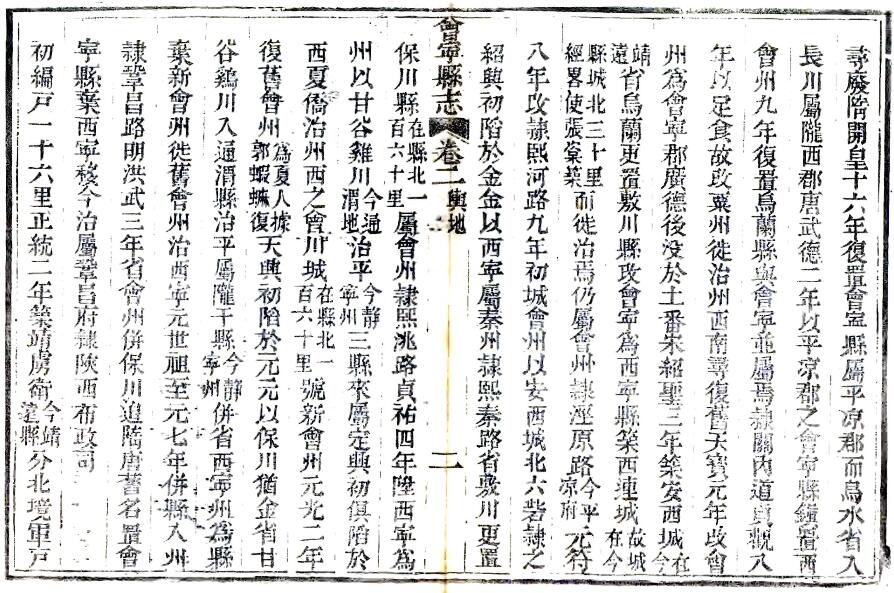 尋廢隋開皇十六年復置會寧縣屬平凉郡而烏水省入
長川屬隴西郡唐武德二年以平凉郡之會寧縣鎮置西
會州九年復置烏蘭縣與會寧並屬焉隸關內道貞觀八
年以定食故改粟州徙治州西南尋復舊天寶元年改會
州爲會寧郡廣德後没於土番宋紹聖三年築安西城在今
靖遠省烏蘭更置敷川縣改會寧爲西寧縣築西連城故城在今
縣城北三十里經畧使張棠築而徙治焉仍屬會州隸涇原路今平凉府元符
八年改隸熙河路九年初城會州以安西城北六砦隸之
紹興初陷於金金以西寧屬秦州隸熙秦路省敷川更置
會寧縣志 卷二 輿地 二
保川縣在縣北一百六十里屬會州隸熙洮路貞祐四年陞西寧爲
州以甘谷雞川今通渭地治平今靜寧州三縣來屬定興初俱陷於
西夏僑治州西之會川城在縣北一百六十里號新會州元光二年
復舊會州爲夏人據郭蝦蟆復天興初陷於元元以保川猶金省甘
谷鷄川入通渭縣治平屬隴干縣今靜寧州併省西寧州爲縣
棄新會州徙舊會州治西寧元世祖至元七年併縣入州
隸鞏昌路明洪武三年省會州併保川追隋唐舊名置會
寧縣棄西寧移今治屬鞏昌府隸陜西布政司
初編戸一十六里正統二年築靖虜衛今靖遠縣分北境軍戸